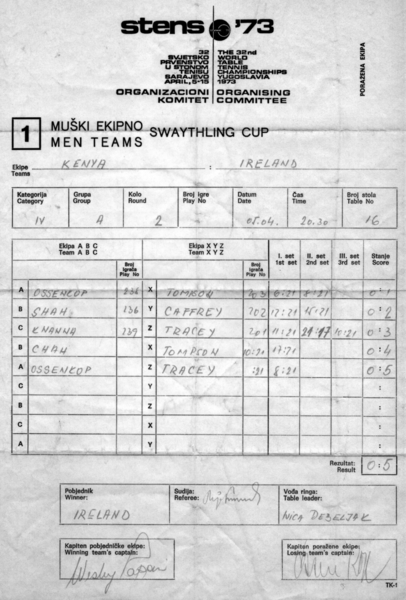 stens '73
32 SVJETSKO PRVENSTVO U STONOM TENISU SARAJEVO APRIL, 5-15
THE 32nd WORLD TABLE TENNIS CHAMPIONSHIPS YUGOSLAVIA 1973
ORGANIZACIONI KOMITET
ORGANISING COMMITTEE
PORAŽENA EKIPA
1 MUŠKI EKIPNO MEN TEAMS SWAYTHLING CUP
Ekipe Teams KENYA : IRELAND
Kategorija Category IV
Grupa Group A
Kolo Round 2
Broj igre Play No
Datum Date 05.04.
Čas Time 20.30
Broj stola Table No 16
Ekipa A B C Team A B C
Broj igrača Play No
Ekipa X Y Z Team X Y Z
Broj igrača Play No
I. set 1st set
II. set 2nd set
III. set 3rd set
Stanje Score
A OSSENKOP X 0:1
B SHAH 236 Y CAFFREY 202 0:2
C KHANNA 239 Z TRACEY 201 11:21 10:21 0:3
B X 0:4
A OSSENKOP Z TRACEY :21 8:21 0:5
C Y :
B Z :
C X :
A Y :
Rezultat: Result 0:5
Pobjednik Winner: IRELAND
Sudija: Referee:
Vođa ringa: Table leader:
Kapiten pobjedničke ekipe: Winning team's captain:
Kapiten poražene ekipe: Losing team's captain:
TK-1